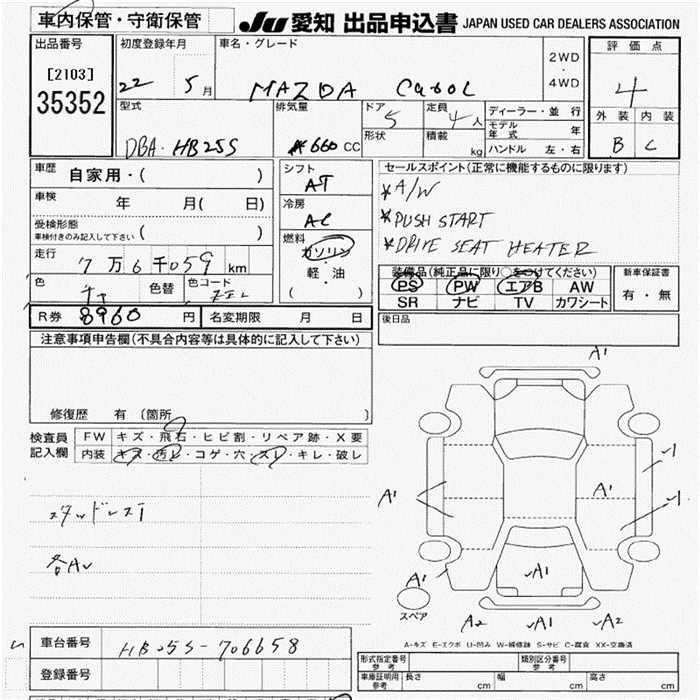 車内保管・守衛保管 JU 愛知 出品申込書 JAPAN USED CAR DEALERS ASSOCIATION
出品番号
[2103]
35352
初度登録年月
22 5月
車名・グレード
MAZDA Carol
2WD
・
4WD
評価点
4
外装 内装
B C
型式
DBA・HB25S
排気量
660 CC
ドア
5
形状
定員
4人
積載
kg
ディーラー・並行
モデル年式 年
ハンドル 左・右
車歴 自家用・( )
車検 年 月( 日)
受検形態
車検付きのみ記入して下さい ( )
走行 7万6千059 km
色 色替 色コード
シフト
AT
冷房
AC
燃料
ガソリン
軽・油
( )
セールスポイント(正常に機能するものに限ります)
*A/W
*PUSH START
*DRIVE SEAT HEATER
装備品(純正品に限り○をつけてください)
PS PW エアB AW
SR ナビ TV カワシート
新車保証書
有・無
R券 8960 円 名変期限 月 日
後日品
注意事項申告欄(不具合内容等は具体的に記入して下さい)
修復歴 有 〔箇所 〕
検査員記入欄
FW キズ・飛石・ヒビ割・リペア跡・X要
内装 キズ・汚レ・コゲ・穴・スレ・キレ・破レ
スタッドレス
各A
A1
A1
A1
A1
A1
A2 A1 A2
スペア
A-キズ E-エクボ U-凹み W-補修跡 S-サビ C-腐食 XX-交換済
車台番号 HB25S-706658
登録番号
形式指定番号 参考
類別区分番号 参考
車庫証明用 参考 長さ cm 幅 cm 高さ cm